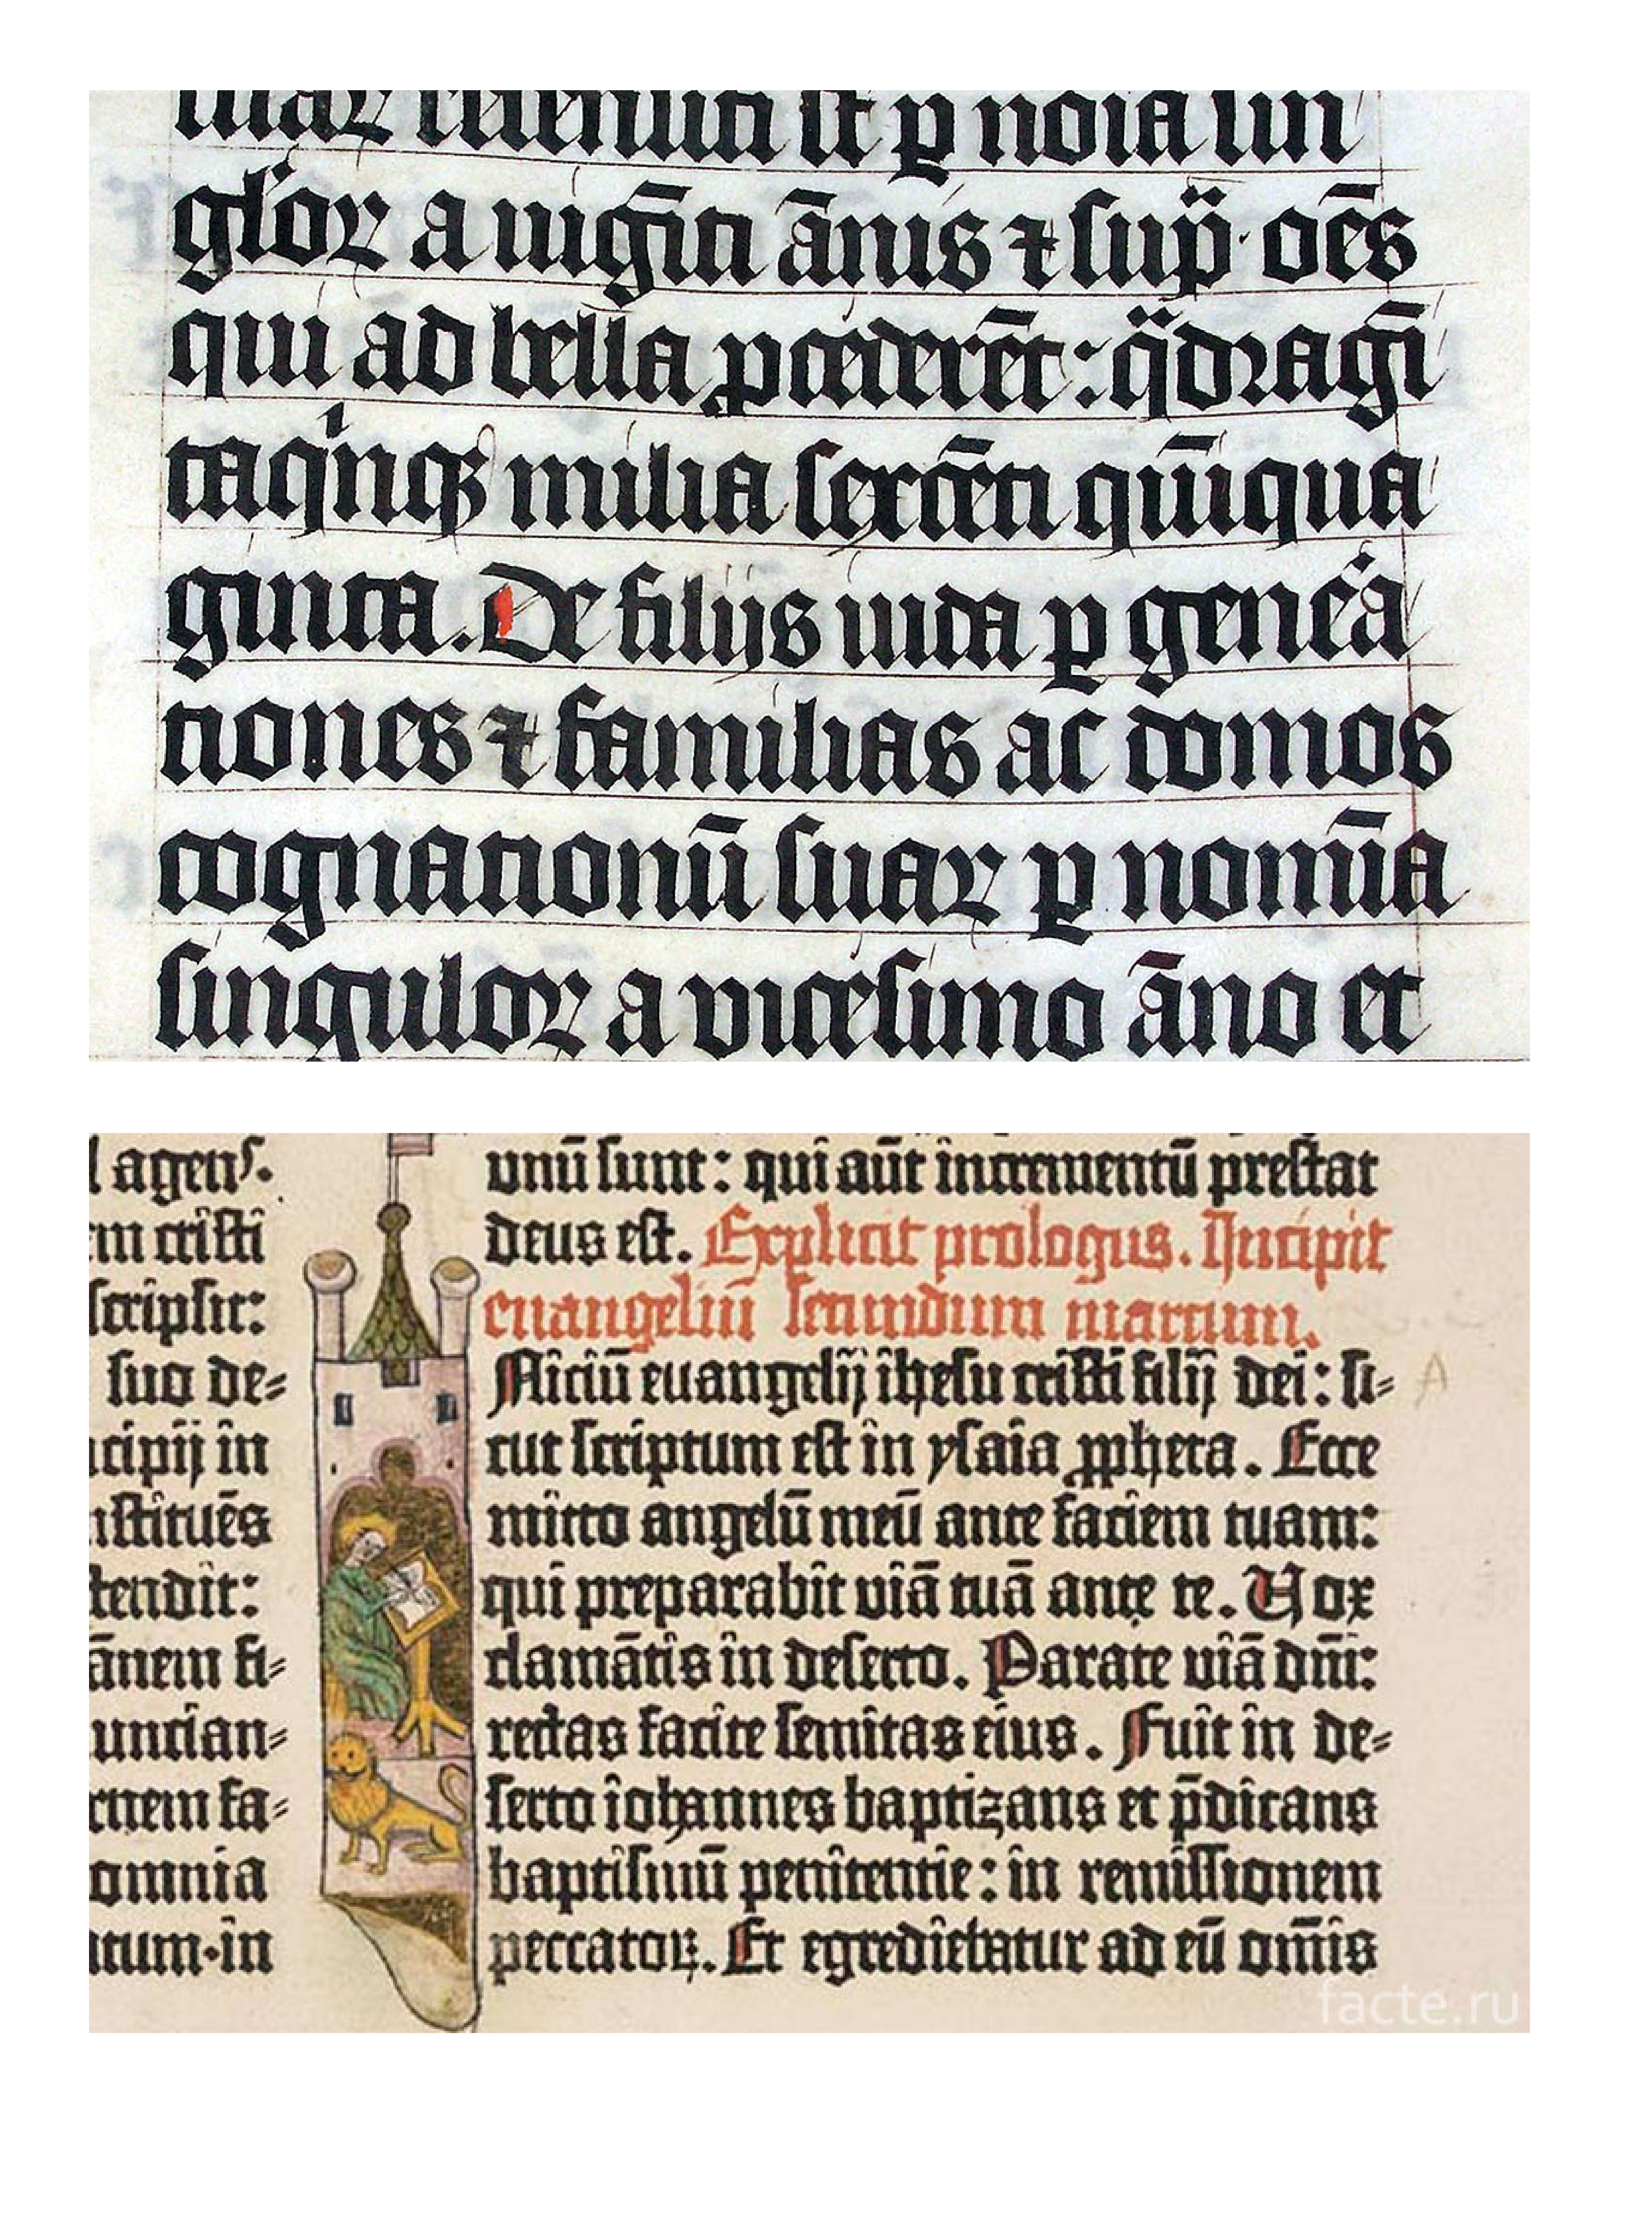 suaꝝ recensiti sꝫ p̱ noīa sin
gl̓oꝝ a uigīti ānis ⁊ sup̄ · oēs
qui ad bella ꝓcederēt : q̈dragī
taqͥnqꝫ milia sexcēti qūīqua
ginta . De filijs iuda ꝑ genēa
tiones ⁊ familias ac domos
cognationū suaꝝ ꝑ nomīa
singuloꝝ a vicesimo āno et
agens.
em cristi
scripsit:
suo de-
cipij in
stituēs
tendit:
ānem fi-
uncian-
rnem fa-
omnia
tum·in
unū sunt: qui aūt incrementū prestat
deus est. Explicit prologus. Incipit
euangeliū secundum marcum.
Niciū euangelij ihesu cristi filij dei: si-
cut scriptum est in ysaia ꝓpheta. Ecce
mitto angelū meū ante faciem tuam:
qui preparabit uiā tuā ante te. Vox
clamātis in deserto. Parate uiā dn̄i:
rectas facite semitas eius. Fuit in de-
serto iohannes baptizans et p̄dicans
baptismū penitentie: in remissionem
peccatoꝝ. Et egrediebatur ad eū om̄is
A
facte.ru